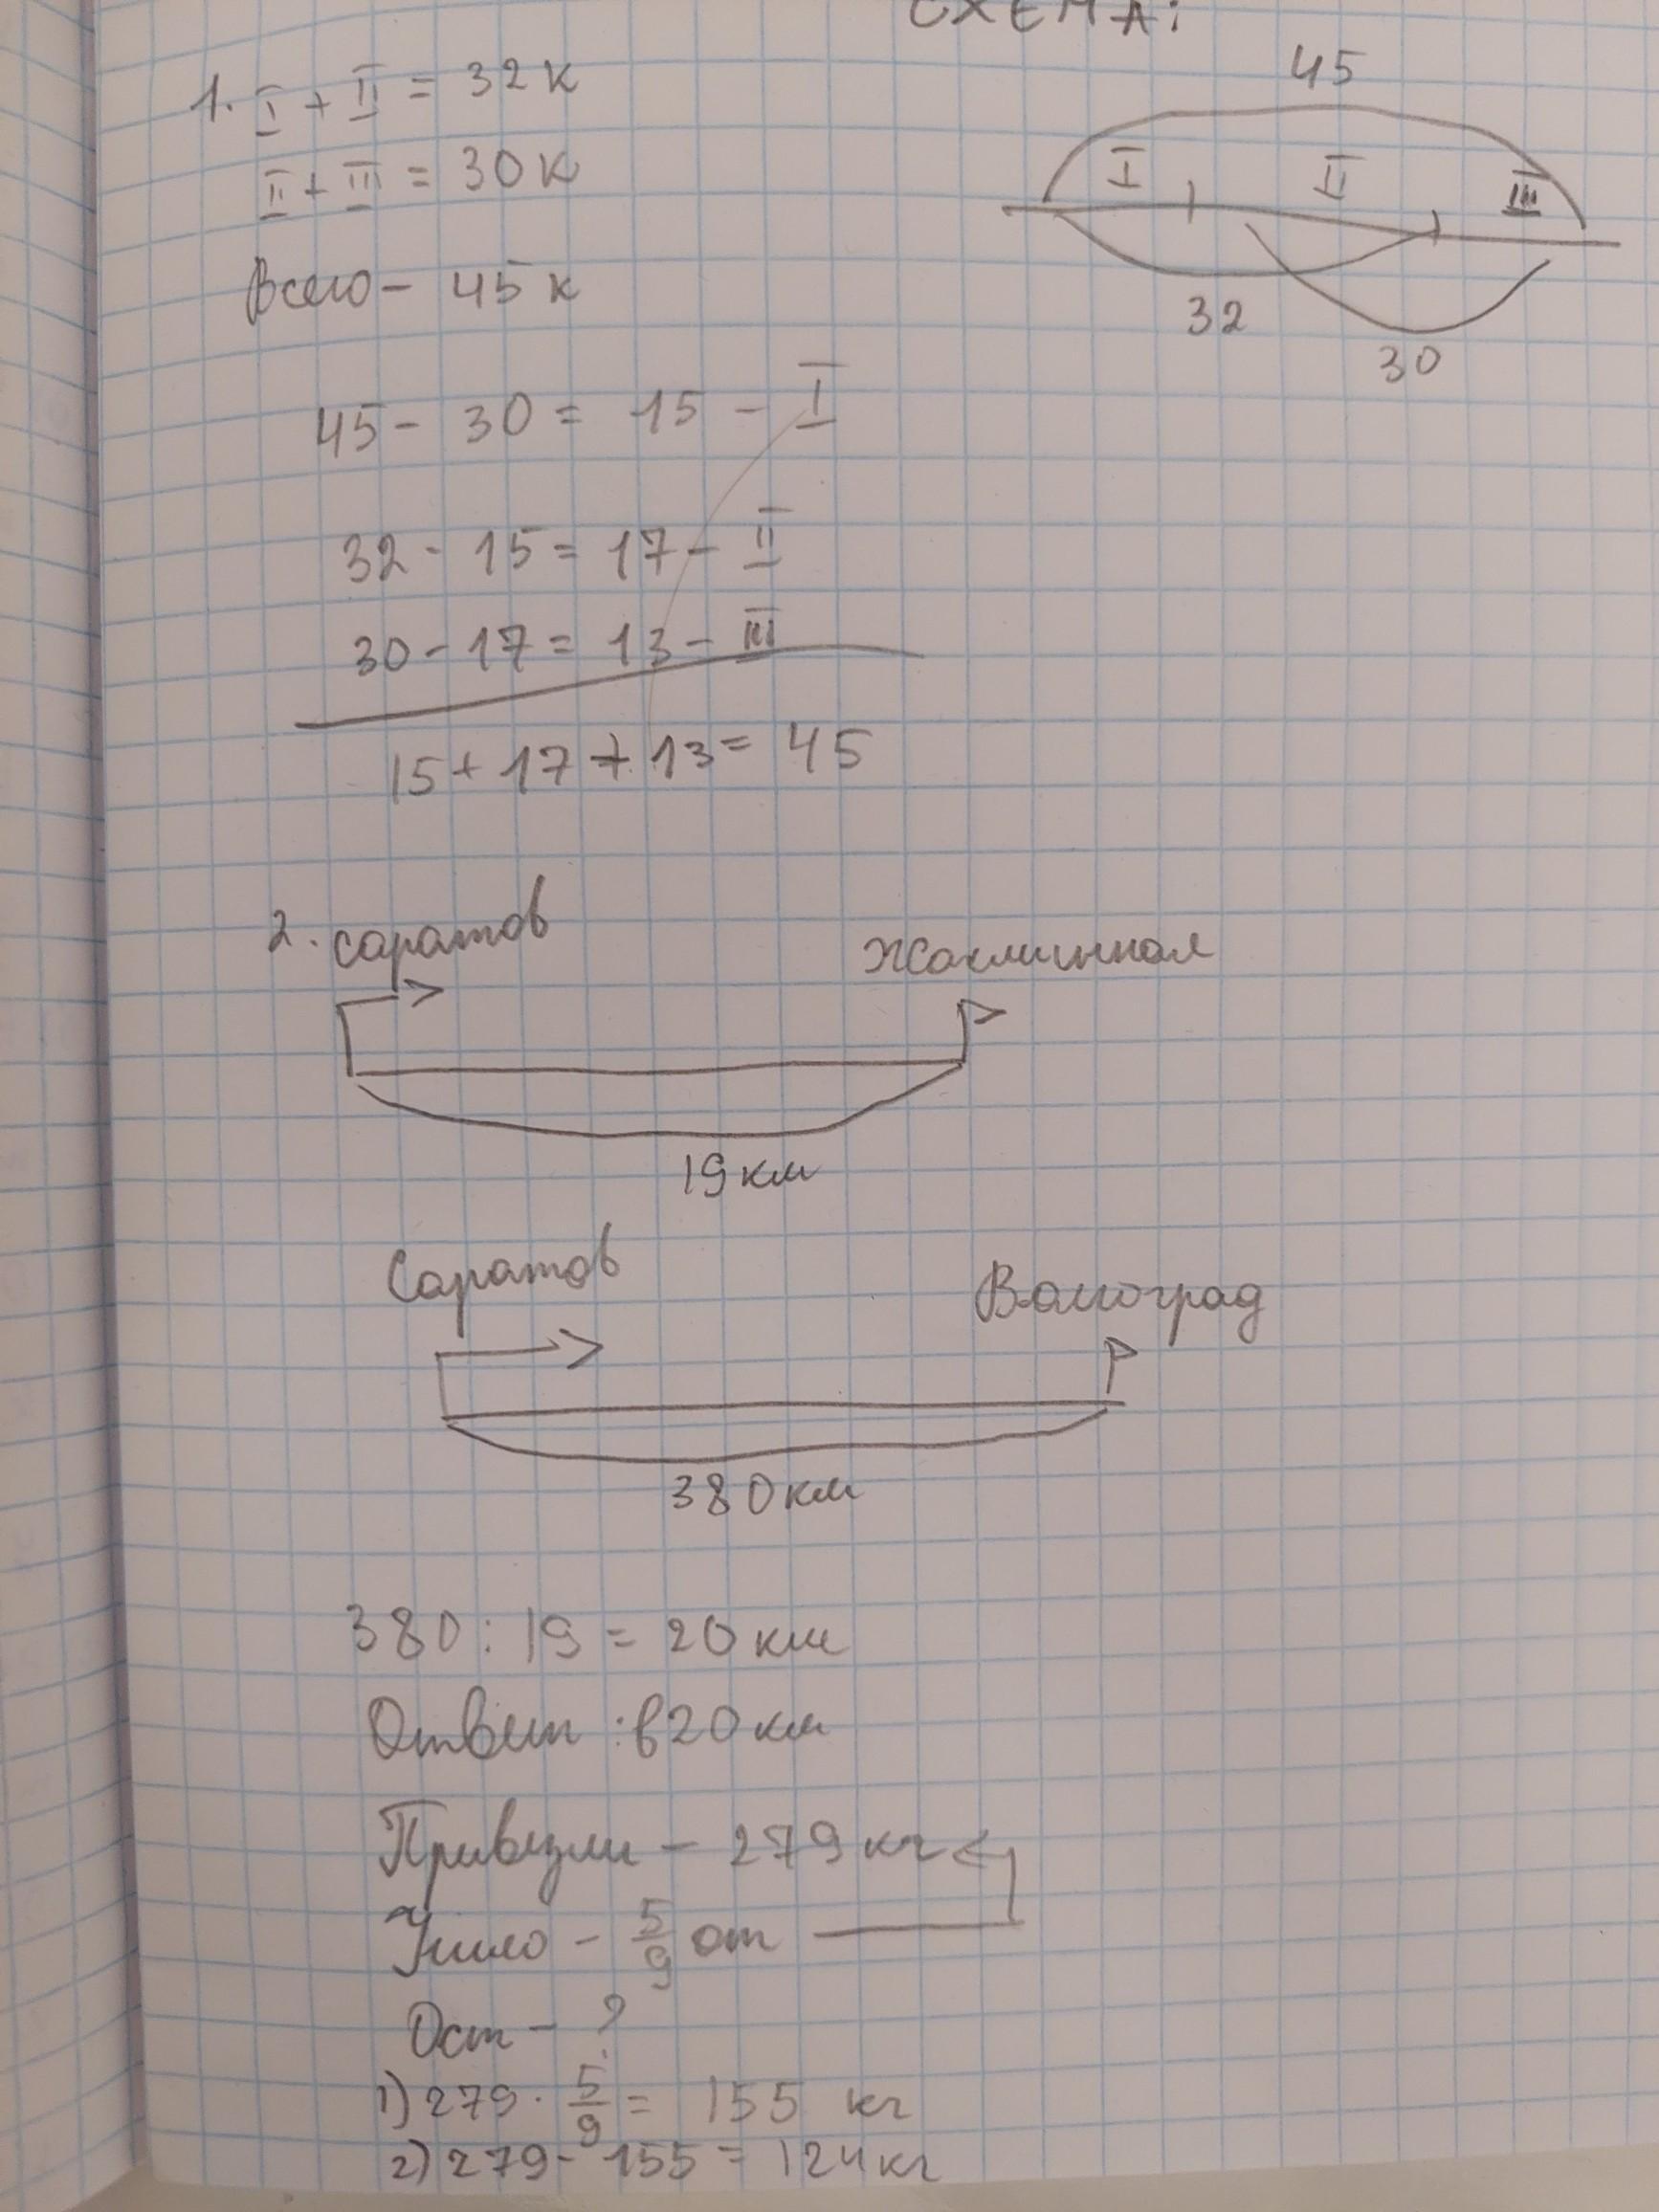 СХЕМА:
1. I + II = 32 к
II + III = 30 к
Всего - 45 к
45
I II III
32
30
45 - 30 = 15 - I
32 - 15 = 17 - II
30 - 17 = 13 - III
15 + 17 + 13 = 45
2. Саратов
19 км
Саратов Волгоград
380 км
380 : 19 = 20 км
Ответ : в 20 км
Привезли - 279 кг
Ушло - 5/9 от
Ост - ?
1) 279 · 5/9 = 155 кг
2) 279 - 155 = 124 кг